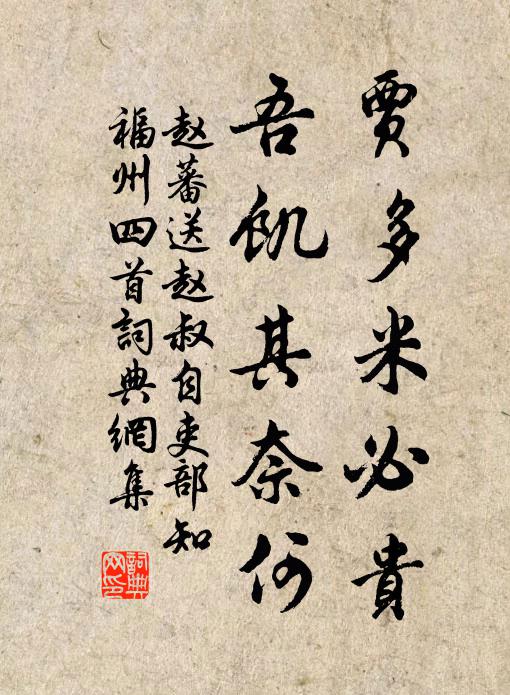 賈多米必貴
吾飢其奈何
赵蕃送赵叔自吏部知
福州四首詞典網集
詞典网印